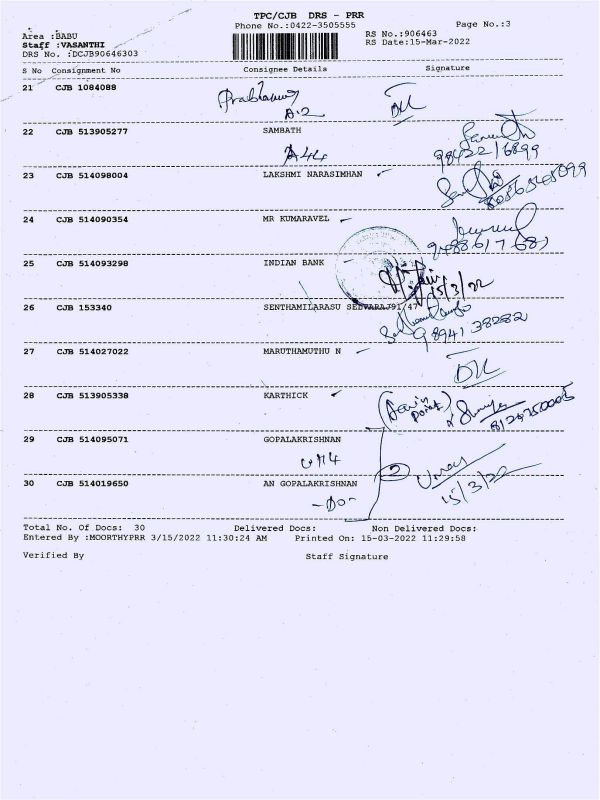 TPC/CJB DRS - PRR
Phone No.:0422-3505555 Page No.:3
Area :BABU RS No.:906463
Staff :VASANTHI RS Date:15-Mar-2022
DRS No. :DCJB90646303
S No Consignment No Consignee Details Signature
21 CJB 1084088
A-2
22 CJB 513905277 SAMBATH
A44 9842216899
23 CJB 514098004 LAKSHMI NARASIMHAN
24 CJB 514090354 MR KUMARAVEL
25 CJB 514093298 INDIAN BANK
15/3/22
26 CJB 153340 SENTHAMILARASU SELVARAJ91/47
9894138282
27 CJB 514027022 MARUTHAMUTHU N
28 CJB 513905338 KARTHICK
29 CJB 514095071 GOPALAKRISHNAN
2
30 CJB 514019650 AN GOPALAKRISHNAN
-DO- 15/3/22
Total No. Of Docs: 30 Delivered Docs: Non Delivered Docs:
Entered By :MOORTHYPRR 3/15/2022 11:30:24 AM Printed On: 15-03-2022 11:29:58
Verified By Staff Signature